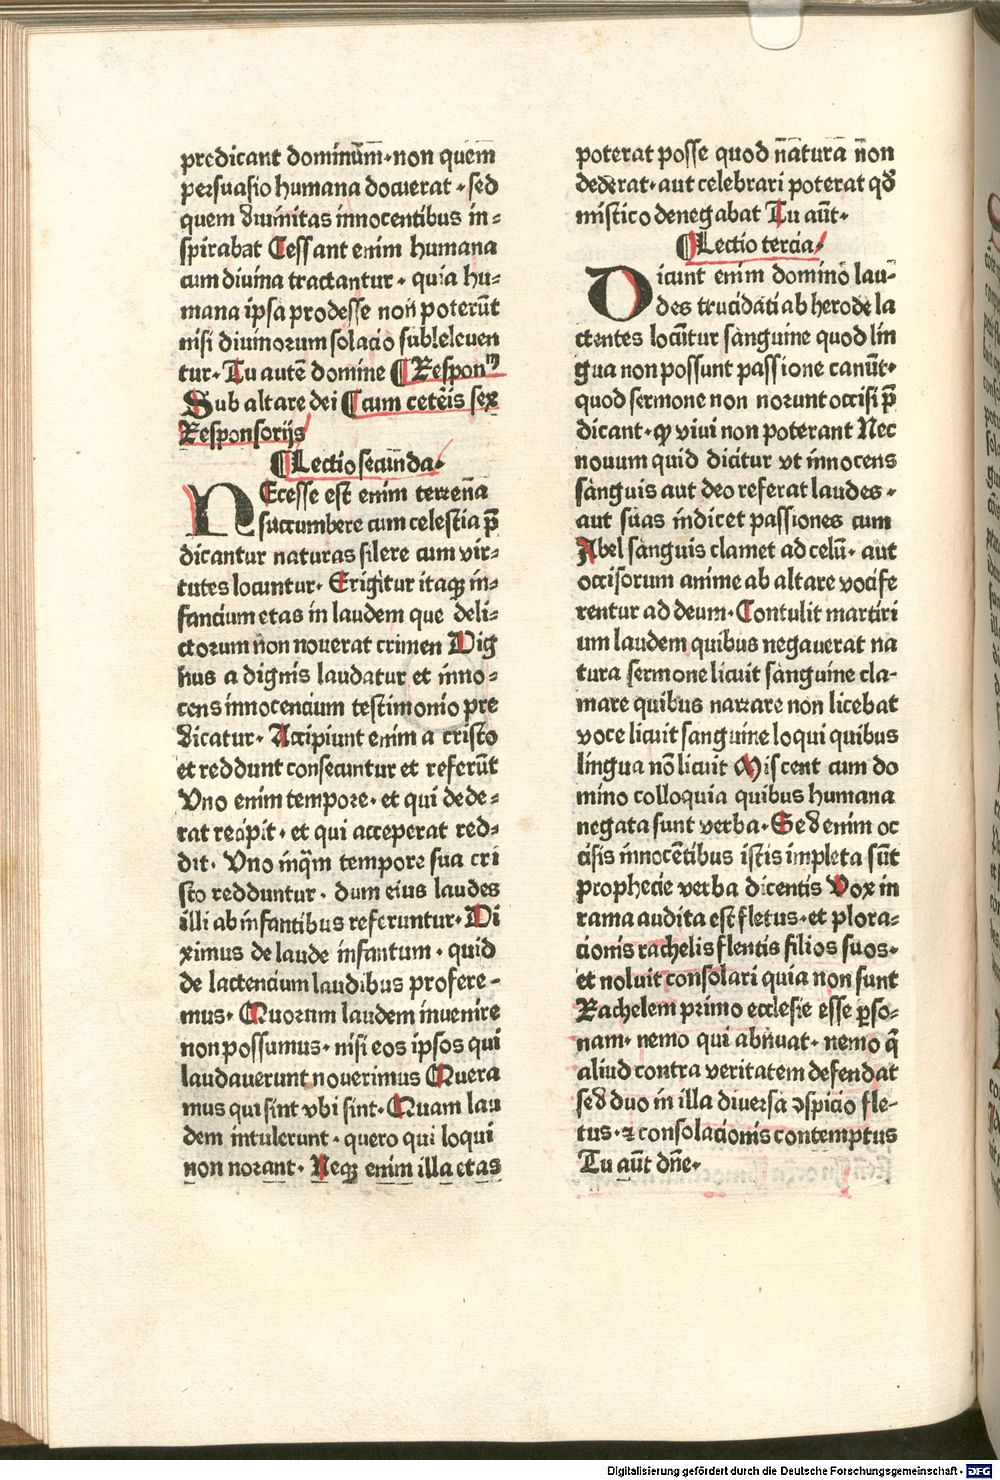 predicant dominū̄m·non quem̄
persuasio humana docuerat·sed
quem diuinitas innocentibus in⸗
spirabat Cessant enim humana
cum diuina tractantur·quia hu⸗
mana ipsa prodesse non poterūt
nisi diuinorum solacio subleleuen
tur·Tu autē domine ¶Responᵐ
Sub altare dei ¶cum cetēis sex
Responsorijs
¶Lectio secunda·
NEcesse est enim terrena
succumbere cum celestia p̄
dicantur naturas silere cum vir⸗
tutes locuntur·Erigitur itaqꝫ in⸗
fancium etas in laudem que deli⸗
ctorum non nouerat crimen Dig
nus a dignis laudatur et inno⸗
cens innocencium testimonio pre
dicatur·Accipiunt enim a cristo
et reddunt consecuntur et referūt
Vno enim tempore·et qui dede⸗
rat recipit·et qui acceperat red⸗
dit·Vno inq̄m tempore sua cri
sto redduntur·dum eius laudes
illi ab infantibus referuntur·Di
ximus de laude infantum·quid
de lactencium laudibus profere⸗
mus·Quorum laudem inuenire
non possumus·nisi eos ipsos qui
laudauerunt nouerimus Quera
mus qui sint vbi sint·Quam lau
dem intulerunt·quero qui loqui
non norant·Neqꝫ enim illa etas
poterat posse quod natura non
dederat·aut celebrari poterat qđ
mistico denegabat Tu aūt·
¶Lectio tercia·
DIcunt enim domino lau⸗
des trucidati ab herode la
ctentes locūtur sanguine quod lin
gua non possunt passione canūt·
quod sermone non norunt occisi p̄
dicant·qꝫ vivi non poterant Nec
nouum quid dicitur vt innocens
sanguis aut deo referat laudes·
aut suas indicet passiones cum
Abel sanguis clamet ad celū·aut
occisorum anime ab altare vocife
rentur ad deum·Contulit martiri
um laudem quibus negauerat na
tura sermone licuit sanguine cla⸗
mare quibus narrare non licebat
voce licuit sanguine loqui quibus
lingua nō licuit Miscent cum do
mino colloquia quibus humana
negata sunt verba·Sed enim oc
cisis innocētibus istis impleta sūt
prophecie verba dicentis Vox in
rama audita est fletus·et plora⸗
cionis rachelis flentis filios suos·
et noluit consolari quia non sunt
Rachelem primo ecclesie esse ꝑso⸗
nam·nemo qui abnuat·nemo q̄
aliud contra veritatem defendat
sed duo in illa diuersa ↄspicio fle⸗
tus·⁊ consolacionis contemptus
Tu aūt dn̄e·
Digitalisierung gefördert durch die Deutsche Forschungsgemeinschaft - DFG